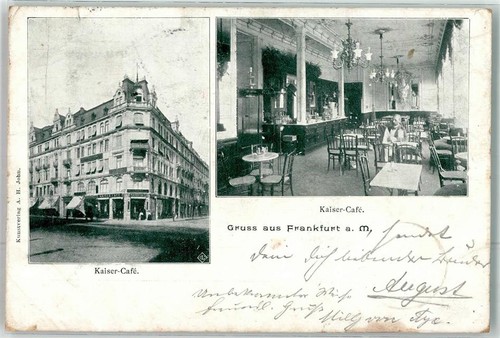 Kunstverlag A. H. John.
Kaiser-Café.
Kaiser-Café.
Gruss aus Frankfurt a. M,
sendet
Dein dich liebender Bruder
August
Unbekannter Weise
freundl. Gruß
Willy von